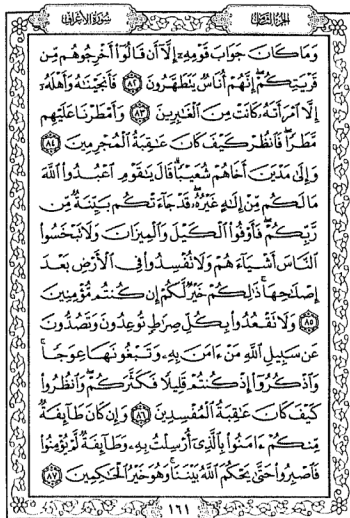 سورة الأعراف
الجزء الثامن
وَمَا كَانَ جَوَابَ قَوْمِهِۦٓ إِلَّآ أَن قَالُوٓا۟ أَخْرِجُوهُم مِّن
قَرْيَتِكُمْ ۖ إِنَّهُمْ أُنَاسٌ يَتَطَهَّرُونَ ٨٢ فَأَنجَيْنَـٰهُ وَأَهْلَهُۥٓ
إِلَّا ٱمْرَأَتَهُۥ كَانَتْ مِنَ ٱلْغَـٰبِرِينَ ٨٣ وَأَمْطَرْنَا عَلَيْهِم
مَّطَرًا ۖ فَٱنظُرْ كَيْفَ كَانَ عَـٰقِبَةُ ٱلْمُجْرِمِينَ ٨٤
وَإِلَىٰ مَدْيَنَ أَخَاهُمْ شُعَيْبًا ۗ قَالَ يَـٰقَوْمِ ٱعْبُدُوا۟ ٱللَّهَ
مَا لَكُم مِّنْ إِلَـٰهٍ غَيْرُهُۥ ۖ قَدْ جَآءَتْكُم بَيِّنَةٌ مِّن
رَّبِّكُمْ ۖ فَأَوْفُوا۟ ٱلْكَيْلَ وَٱلْمِيزَانَ وَلَا تَبْخَسُوا۟
ٱلنَّاسَ أَشْيَآءَهُمْ وَلَا تُفْسِدُوا۟ فِى ٱلْأَرْضِ بَعْدَ
إِصْلَـٰحِهَا ۚ ذَٰلِكُمْ خَيْرٌ لَّكُمْ إِن كُنتُم مُّؤْمِنِينَ
٨٥ وَلَا تَقْعُدُوا۟ بِكُلِّ صِرَٰطٍ تُوعِدُونَ وَتَصُدُّونَ
عَن سَبِيلِ ٱللَّهِ مَنْ ءَامَنَ بِهِۦ وَتَبْغُونَهَا عِوَجًا ۚ
وَٱذْكُرُوٓا۟ إِذْ كُنتُمْ قَلِيلًا فَكَثَّرَكُمْ ۖ وَٱنظُرُوا۟
كَيْفَ كَانَ عَـٰقِبَةُ ٱلْمُفْسِدِينَ ٨٦ وَإِن كَانَ طَآئِفَةٌ
مِّنكُمْ ءَامَنُوا۟ بِٱلَّذِىٓ أُرْسِلْتُ بِهِۦ وَطَآئِفَةٌ لَّمْ يُؤْمِنُوا۟
فَٱصْبِرُوا۟ حَتَّىٰ يَحْكُمَ ٱللَّهُ بَيْنَنَا ۚ وَهُوَ خَيْرُ ٱلْحَـٰكِمِينَ ٨٧
١٦١